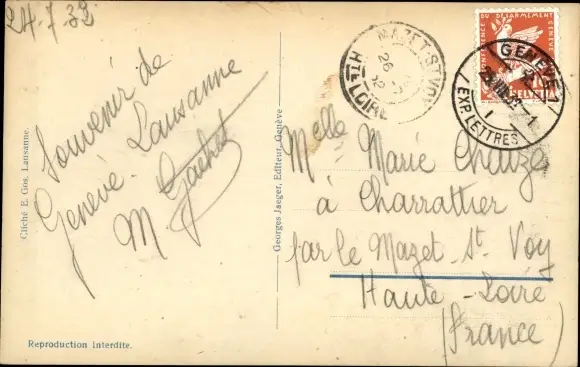 24-7-32
Souvenir de
Genevé-Lausanne
M. Gachet
Cliché E. Gos, Lausanne.
Georges Jaeger, Editeur, Genève
Reproduction interdite.
CONFÉRENCE DU DÉSARMEMENT GENÈVE
HELVETIA
GENÈVE 1
EXP. LETTRES
MAZET-ST-VOY
26
32
HTE LOIRE
Melle Marie Cheuze
à Charrattier
par le Mazet-St Voy
Haute-Loire
(France)